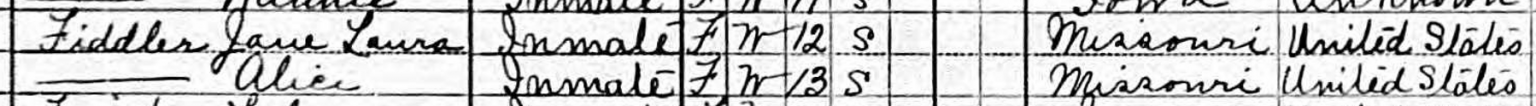 Inmate F W 11 S Iowa Unknown
Fiddler Jane Laura Inmate F W 12 S Missouri United States
—— Alice Inmate F W 13 S Missouri United States